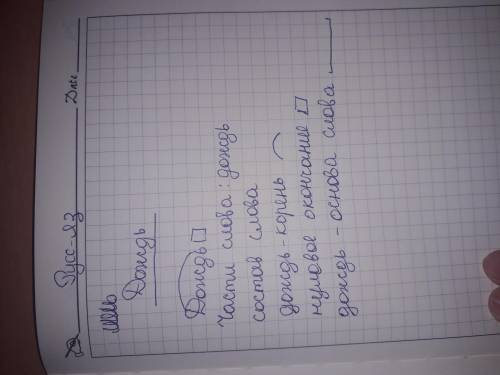 Русс-яз Date
Дождь
Дождь
Части слова: дождь
состав слова
дождь - корень
нулевое окончание
дождь - основа слова